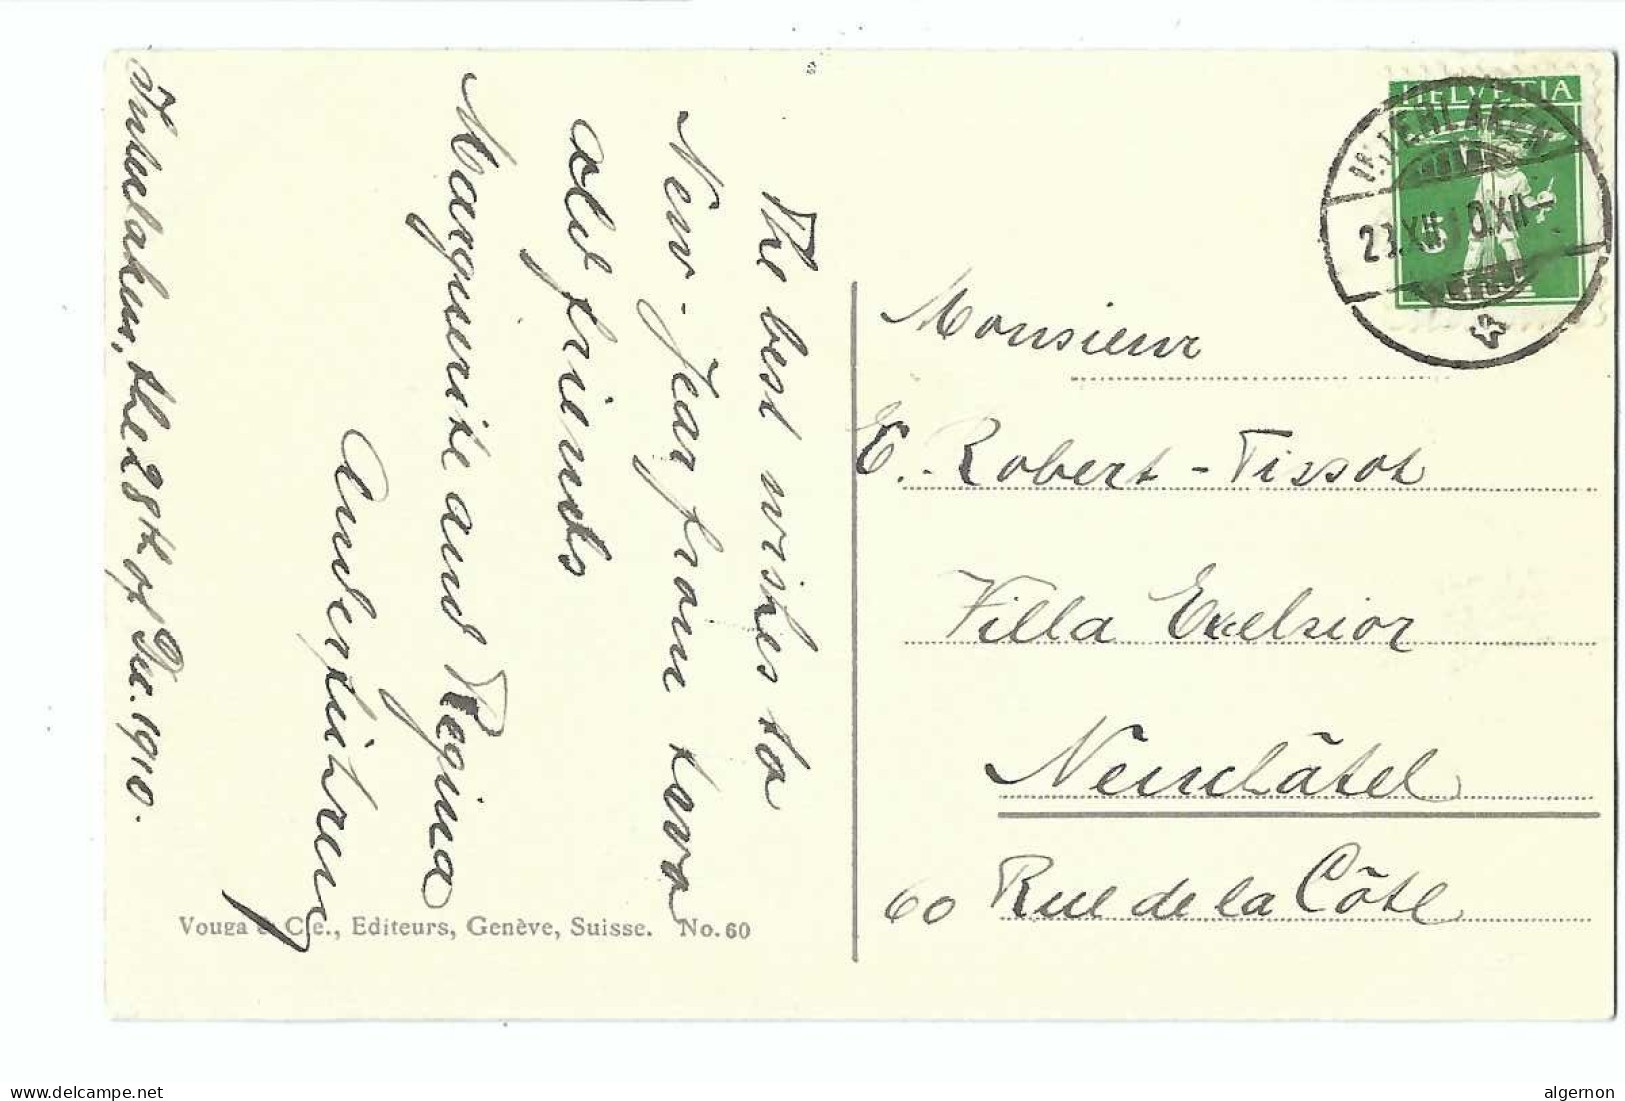 Interlaken, the 28th of Dec. 1910.
The best wishes to
New-Jear from two
old friends
Marguerite and Regina
Anderfuhren
Vouga & Cie., Editeurs, Genève, Suisse. No. 60
HELVETIA
INTERLAKEN
Monsieur
E. Robert-Tissot
Villa Excelsior
Neuchâtel
60 Rue de la Côte
www.delcampe.net
algernon